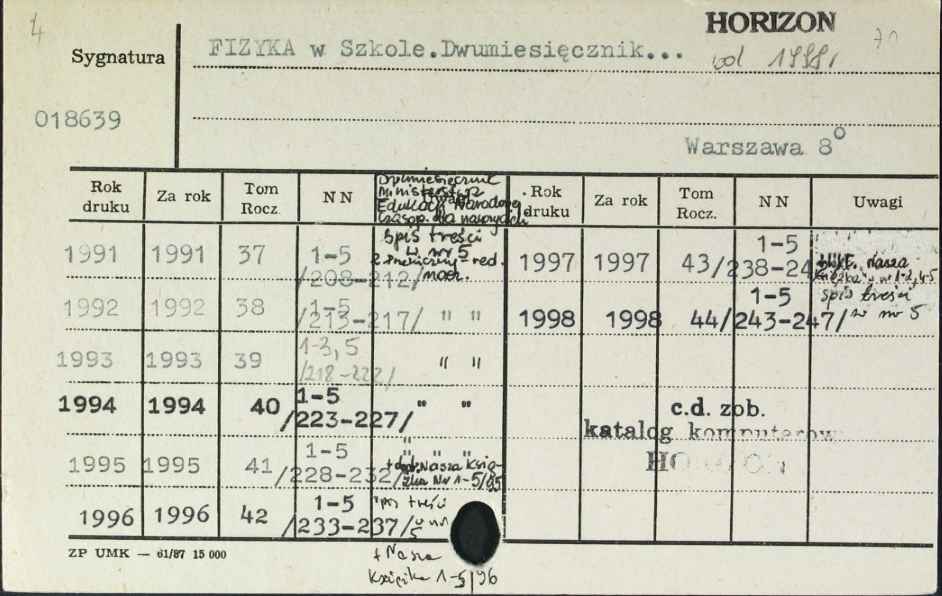 4
HORIZON
Sygnatura
FIZYKA w Szkole.Dwumiesięcznik...
od 1999r
70
018639
Warszawa 8°
Rok druku Za rok Tom Rocz. NN Uwagi
Dwumiesięcznik
Ministerstwa
Edukacji Narodowej
Czasop. dla nauczycieli
Rok druku Za rok Tom Rocz. NN Uwagi
1991 1991 37 1-5 /208-212/ spis treści w nr 5
1992 1992 38 1-5 /213-217/ " "
1993 1993 39 1-3, 5 /218-222/ " "
1994 1994 40 1-5 /223-227/ " "
1995 1995 41 1-5 /228-232/ " " "
+ dod. Nasza Książka Nr 1-5/95
1996 1996 42 1-5 /233-237/ spis treści w nr 5
+ Nasza
Książka 1-5/96
1997 1997 43 1-5 /238-242/ Nasza Książka w nr 1-2, 4-5
1998 1998 44 1-5 /243-247/ spis treści w nr 5
c.d. zob.
katalog komputerowy
HORIZON
ZP UMK — 61/87 15 000